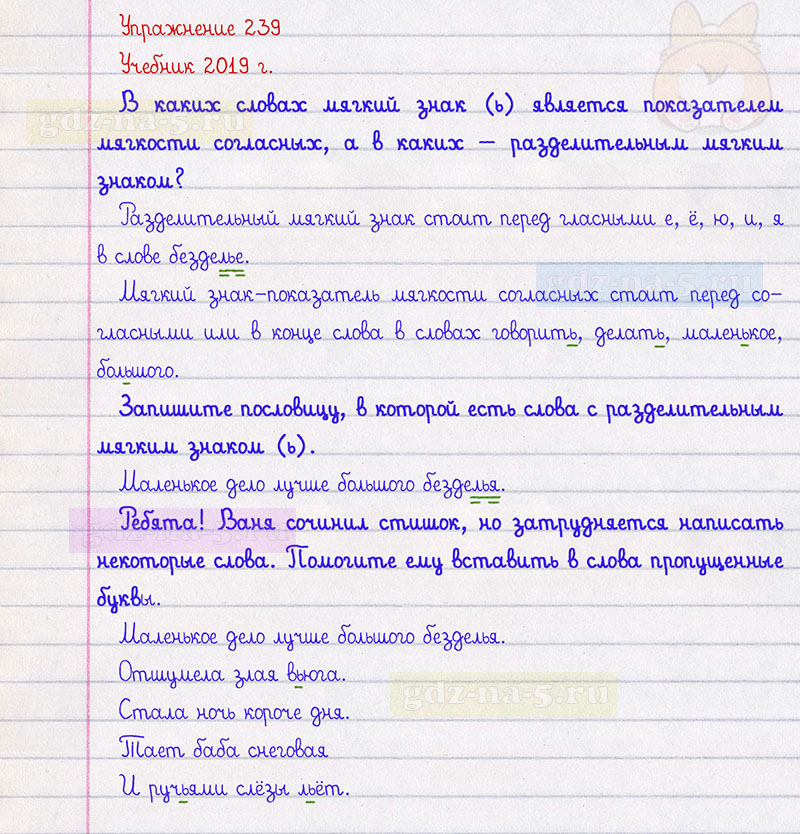 Упражнение 239
Учебник 2019 г.
В каких словах мягкий знак (ь) является показателем
gdz-na-5.ru
мягкости согласных, а в каких — разделительным мягким
знаком?
Разделительный мягкий знак стоит перед гласными е, ё, ю, и, я
в слове безделье.
gdz-na-5.ru
Мягкий знак-показатель мягкости согласных стоит перед со-
гласными или в конце слова в словах говорить, делать, маленькое,
большого.
Запишите пословицу, в которой есть слова с разделительным
мягким знаком (ь).
Маленькое дело лучше большого безделья.
Ребята! Ваня сочинил стишок, но затрудняется написать
gdz-na-5.ru
некоторые слова. Помогите ему вставить в слова пропущенные
буквы.
Маленькое дело лучше большого безделья.
Отшумела злая вьюга.
gdz-na-5.ru
Стала ночь короче дня.
Тает баба снеговая
И ручьями слёзы льёт.